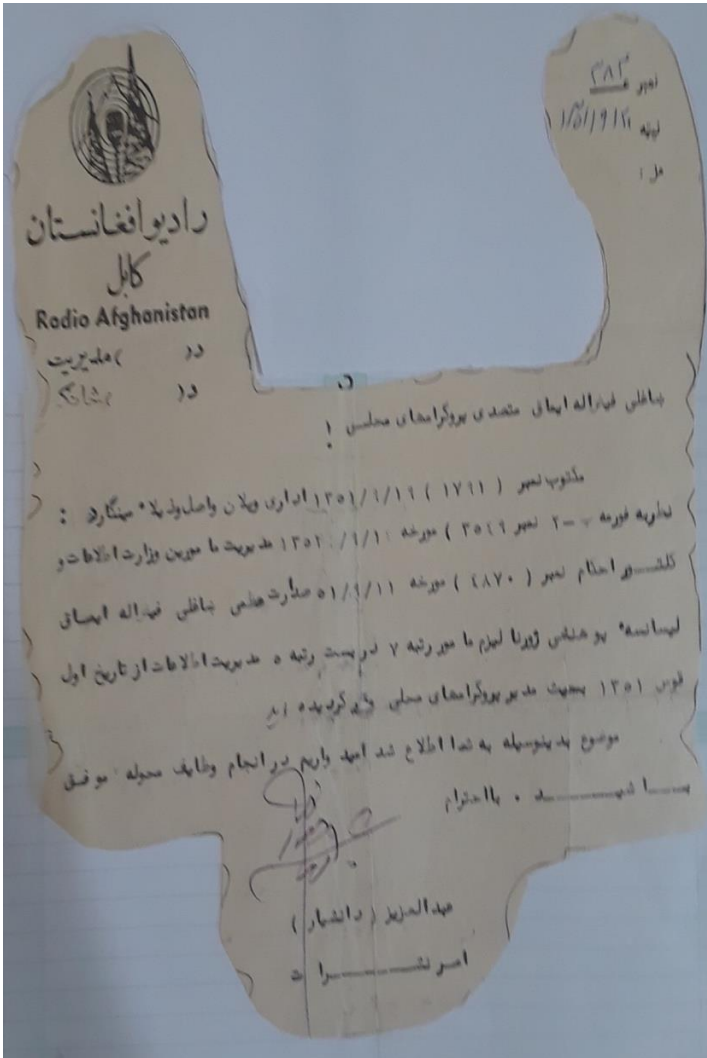 نمبر ۳۸۳
نیټه ۱۳۵۱/۹/۲۱
مل :
رادیو افغانستان
کابل
Radio Afghanistan
د ( ) مدیریت
د ( ) څانګه
ښاغلی فیض‌اله ایماق متصدی پروگرامهای محلی !
مکتوب نمبر ( ۱۷۹۱ ) ۱۳۵۱/۹/۱۹ اداری واصل و ذیلاً مینگارد :
نظربه فورمه ۲ نمبر ( ۳۵۴۹ ) مورخه ۱۳۵۱/۹/۱۰ مدیریت مامورین وزارت اطلاعات و
کلتــور احکام نمبر ( ۴۸۷۰ ) مورخه ۵۱/۹/۱۱ صدارت عظمی ښاغلی فیض‌اله ایماق
لیسانسه پوهنځی ژورنالیزم مامور رتبه ۷ در بست رتبه ۵ مدیریت اطلاعات از تاریخ اول
قوس ۱۳۵۱ بحیث مدیر پروگرامهای محلی گردیده اند
موضوع بدینوسیله به شما اطلاع شد امید واریم در انجام وظایف محوله موفق
بــاشیــد . بااحترام
عبدالعزیز ( دانشیار )
امر نشــرات